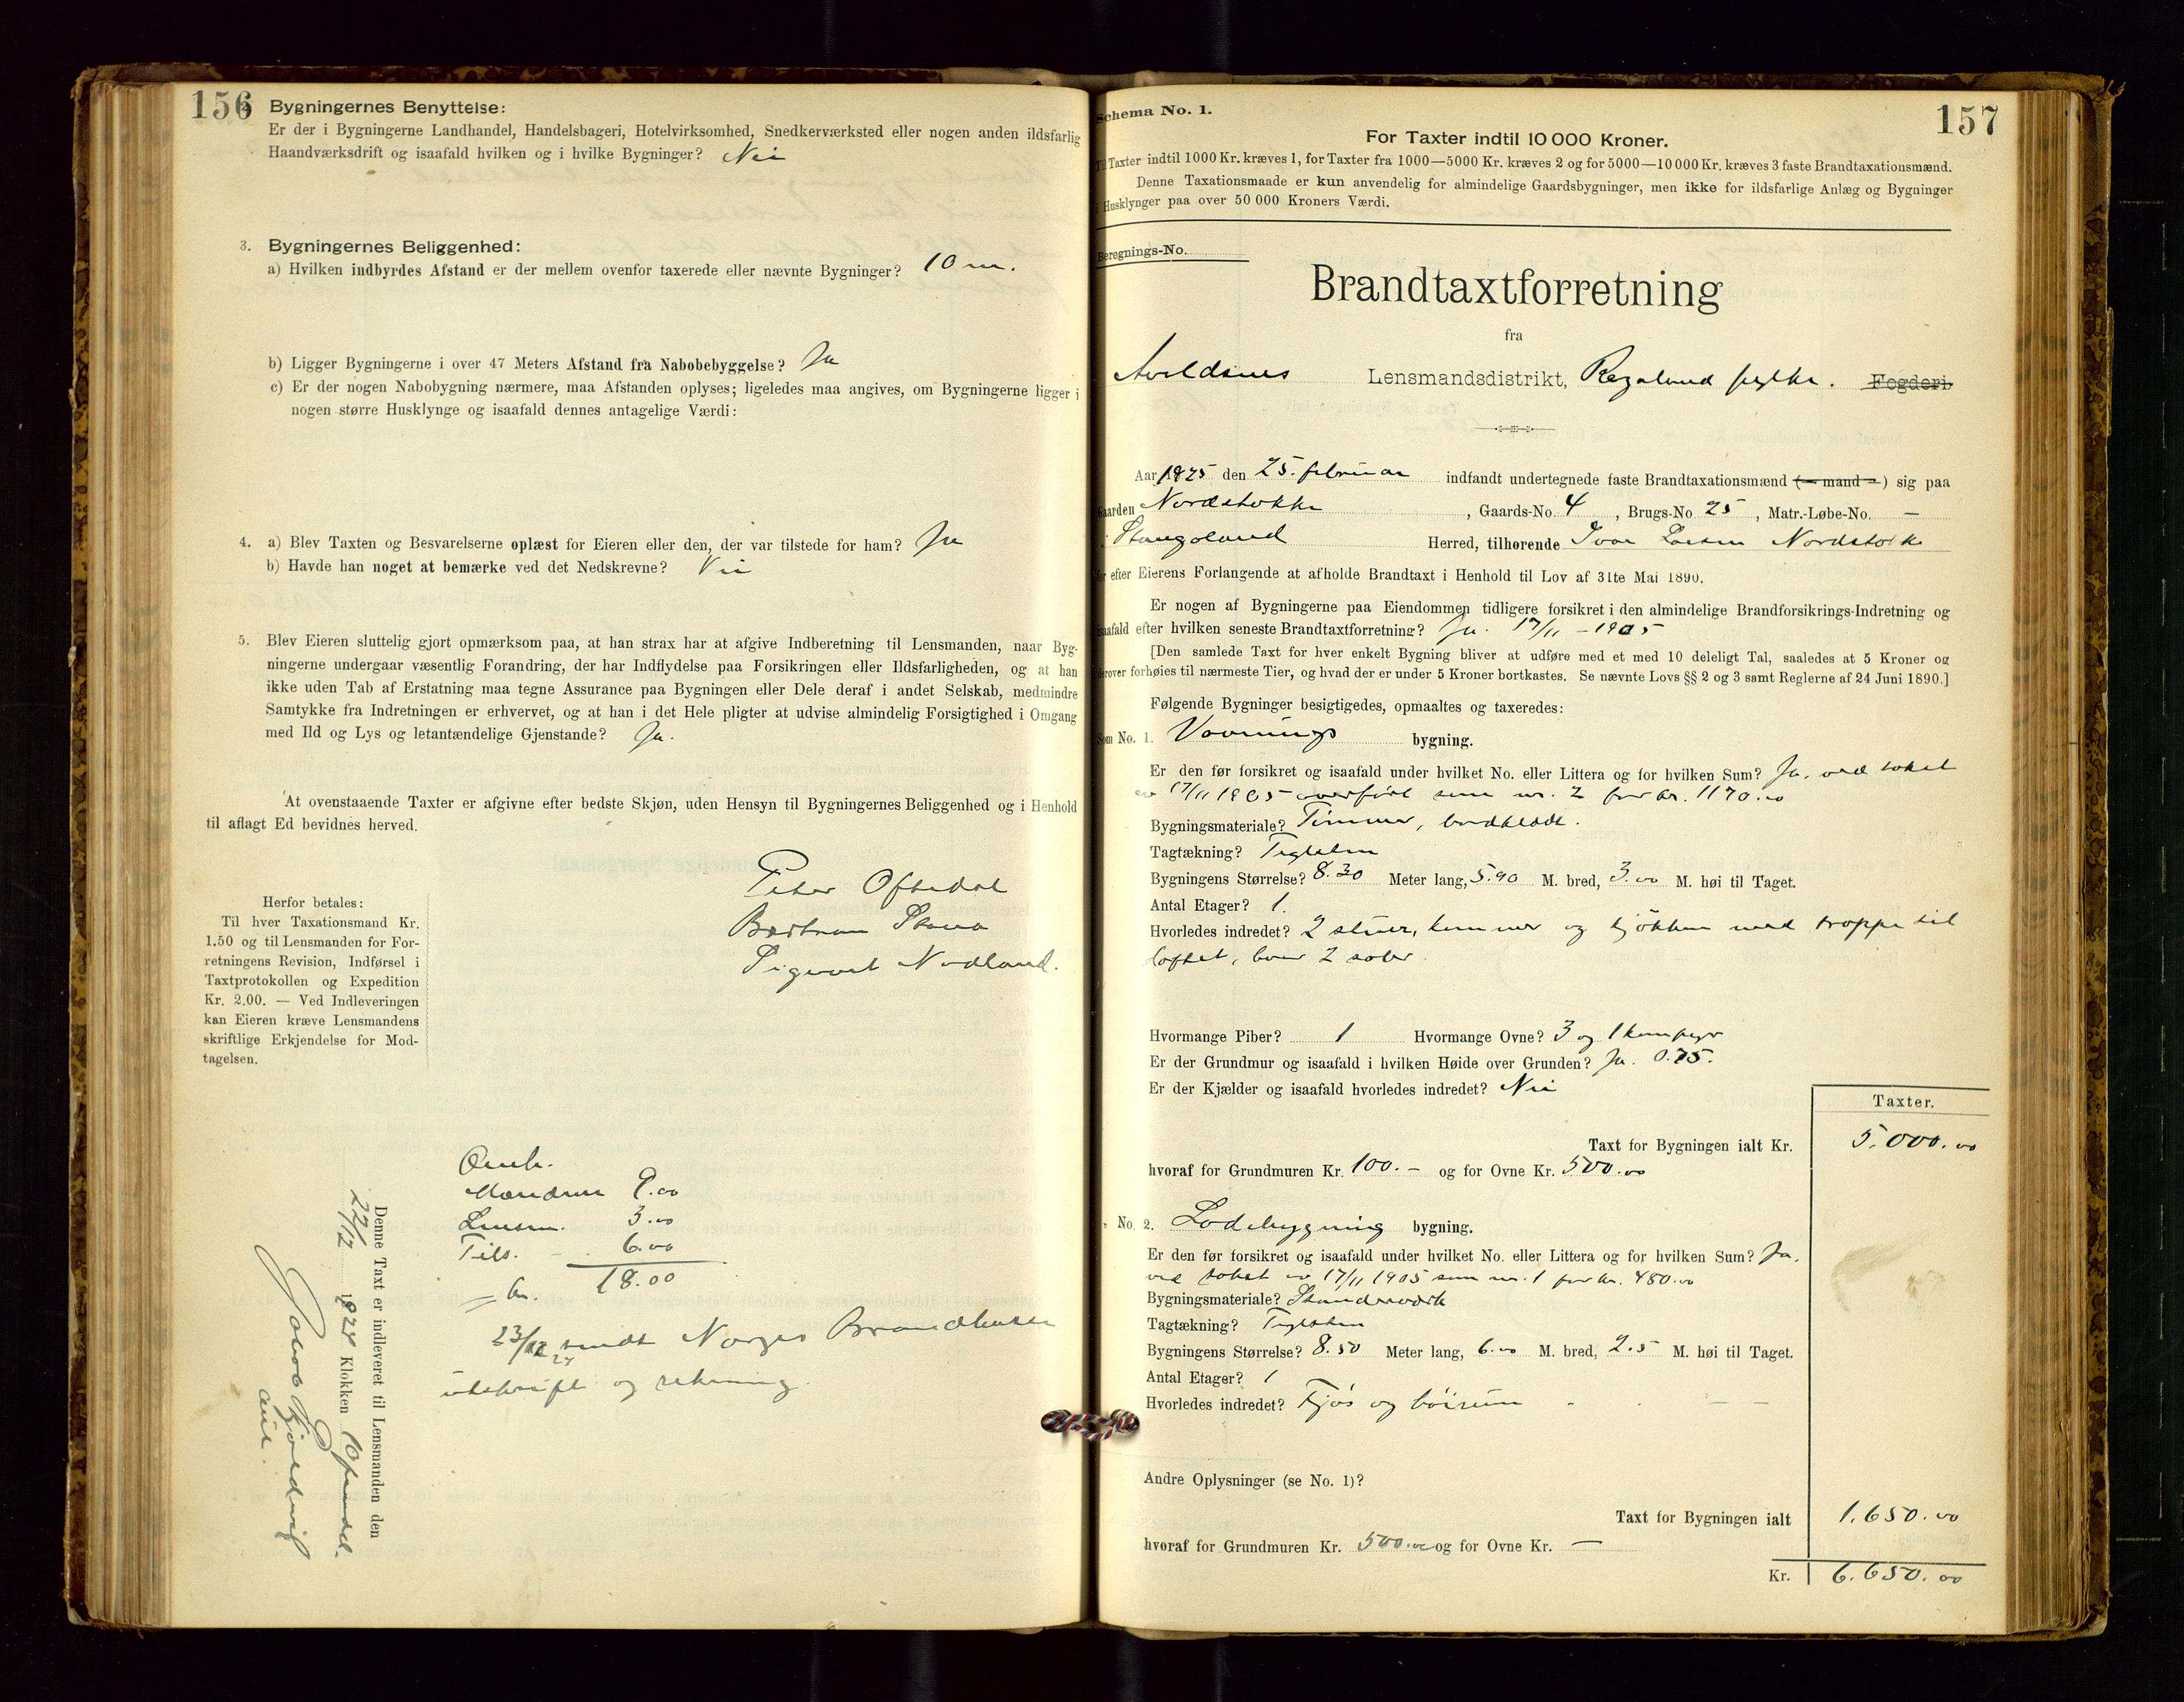 156
2. Bygningernes Benyttelse:
Er der i Bygningerne Landhandel, Handelsbageri, Hotelvirksomhed, Snedkerværksted eller nogen anden ildsfarlig
Haandværksdrift og isaafald hvilken og i hvilke Bygninger? Nei
3. Bygningernes Beliggenhed:
a) Hvilken indbyrdes Afstand er der mellem ovenfor taxerede eller nævnte Bygninger? 10 m.
b) Ligger Bygningerne i over 47 Meters Afstand fra Nabobebyggelse? Ja
c) Er der nogen Nabobygning nærmere, maa Afstanden oplyses; ligeledes maa angives, om Bygningerne ligger i
nogen større Husklynge og isaafald dennes antagelige Værdi:
4. a) Blev Taxten og Besvarelserne oplæst for Eieren eller den, der var tilstede for ham? Ja
b) Havde han noget at bemærke ved det Nedskrevne? Nei
5. Blev Eieren sluttelig gjort opmærksom paa, at han strax har at afgive Indberetning til Lensmanden, naar Byg-
ningerne undergaar væsentlig Forandring, der har Indflydelse paa Forsikringen eller Ildsfarligheden, og at han
ikke uden Tab af Erstatning maa tegne Assurance paa Bygningen eller Dele deraf i andet Selskab, medmindre
Samtykke fra Indretningen er erhvervet, og at han i det Hele pligter at udvise almindelig Forsigtighed i Omgang
med Ild og Lys og letantændelige Gjenstande? Ja.
At ovenstaaende Taxter er afgivne efter bedste Skjøn, uden Hensyn til Bygningernes Beliggenhed og i Henhold
til aflagt Ed bevidnes herved.
Peter Oftedal
Bertram Stava
Sigvart Nodland.
Herfor betales:
Til hver Taxationsmand Kr.
1.50 og til Lensmanden for For-
retningens Revision, Indførsel i
Taxtprotokollen og Expedition
Kr. 2.00. — Ved Indleveringen
kan Eieren kræve Lensmandens
skriftlige Erkjendelse for Mod-
tagelsen.
Omk.
Mændene 9.00
Lensm. 3.00
Tils. 6.00
= kr. 18.00
23/12 27 sendt Norges Brandkasse
utskrift og rekning.
Denne Taxt er indleveret til Lensmanden den
22/12 1927 Klokken 10 formidd.
Jakob
157
Schema No. 1.
For Taxter indtil 10 000 Kroner.
Til Taxter indtil 1000 Kr. kræves 1, for Taxter fra 1000—5000 Kr. kræves 2 og for 5000—10 000 Kr. kræves 3 faste Brandtaxationsmænd.
Denne Taxationsmaade er kun anvendelig for almindelige Gaardsbygninger, men ikke for ildsfarlige Anlæg og Bygninger
i Husklynger paa over 50 000 Kroners Værdi.
Beregnings-No.
Brandtaxtforretning
fra
Avaldsnes Lensmandsdistrikt, Rogaland fylke. Fogderi.
Aar 1925 den 25. februar indfandt undertegnede faste Brandtaxationsmænd (— mand —) sig paa
Gaarden Nordstokke, Gaards-No. 4, Brugs-No. 25, Matr.-Løbe-No. —
i Stangaland Herred, tilhørende Ivar Larsen Nordstokke
for efter Eierens Forlangende at afholde Brandtaxt i Henhold til Lov af 31te Mai 1890.
Er nogen af Bygningerne paa Eiendommen tidligere forsikret i den almindelige Brandforsikrings-Indretning og
isaafald efter hvilken seneste Brandtaxtforretning? Ja. 17/11 - 1905
[Den samlede Taxt for hver enkelt Bygning bliver at udføre med et med 10 deleligt Tal, saaledes at 5 Kroner og
derover forhøies til nærmeste Tier, og hvad der er under 5 Kroner bortkastes. Se nævnte Lovs §§ 2 og 3 samt Reglerne af 24 Juni 1890.]
Følgende Bygninger besigtigedes, opmaaltes og taxeredes:
Som No. 1. Vaanings bygning.
Er den før forsikret og isaafald under hvilket No. eller Littera og for hvilken Sum? Ja, ved takst
av 17/11 1905 overført som nr. 2 for kr. 1170.00
Bygningsmateriale? Tømmer, bordklædt.
Tagtækning? Teglsten
Bygningens Størrelse? 8.30 Meter lang, 5.90 M. bred, 3.00 M. høi til Taget.
Antal Etager? 1.
Hvorledes indredet? 2 stuer, kammer og kjøkken med trappe til
loftet, hvor 2 soler.
Hvormange Piber? 1 Hvormange Ovne? 3 og 1 komfyr
Er der Grundmur og isaafald i hvilken Høide over Grunden? Ja. 0.75.
Er der Kjælder og isaafald hvorledes indredet? Nei
Taxter.
Taxt for Bygningen ialt Kr. 5.000.00
hvoraf for Grundmuren Kr. 100.- og for Ovne Kr. 500.00
" No. 2. Lodebygning bygning.
Er den før forsikret og isaafald under hvilket No. eller Littera og for hvilken Sum? Ja,
ved takst av 17/11 1905 som nr. 1 for kr. 480.00
Bygningsmateriale? Standerverk
Tagtækning? Teglsten
Bygningens Størrelse? 8.50 Meter lang, 6.00 M. bred, 2.5 M. høi til Taget.
Antal Etager? 1
Hvorledes indredet? Fjøs og høirum
Andre Oplysninger (se No. 1)?
Taxt for Bygningen ialt 1.650.00
hvoraf for Grundmuren Kr. 500.00 og for Ovne Kr. —
Kr. 6.650.00